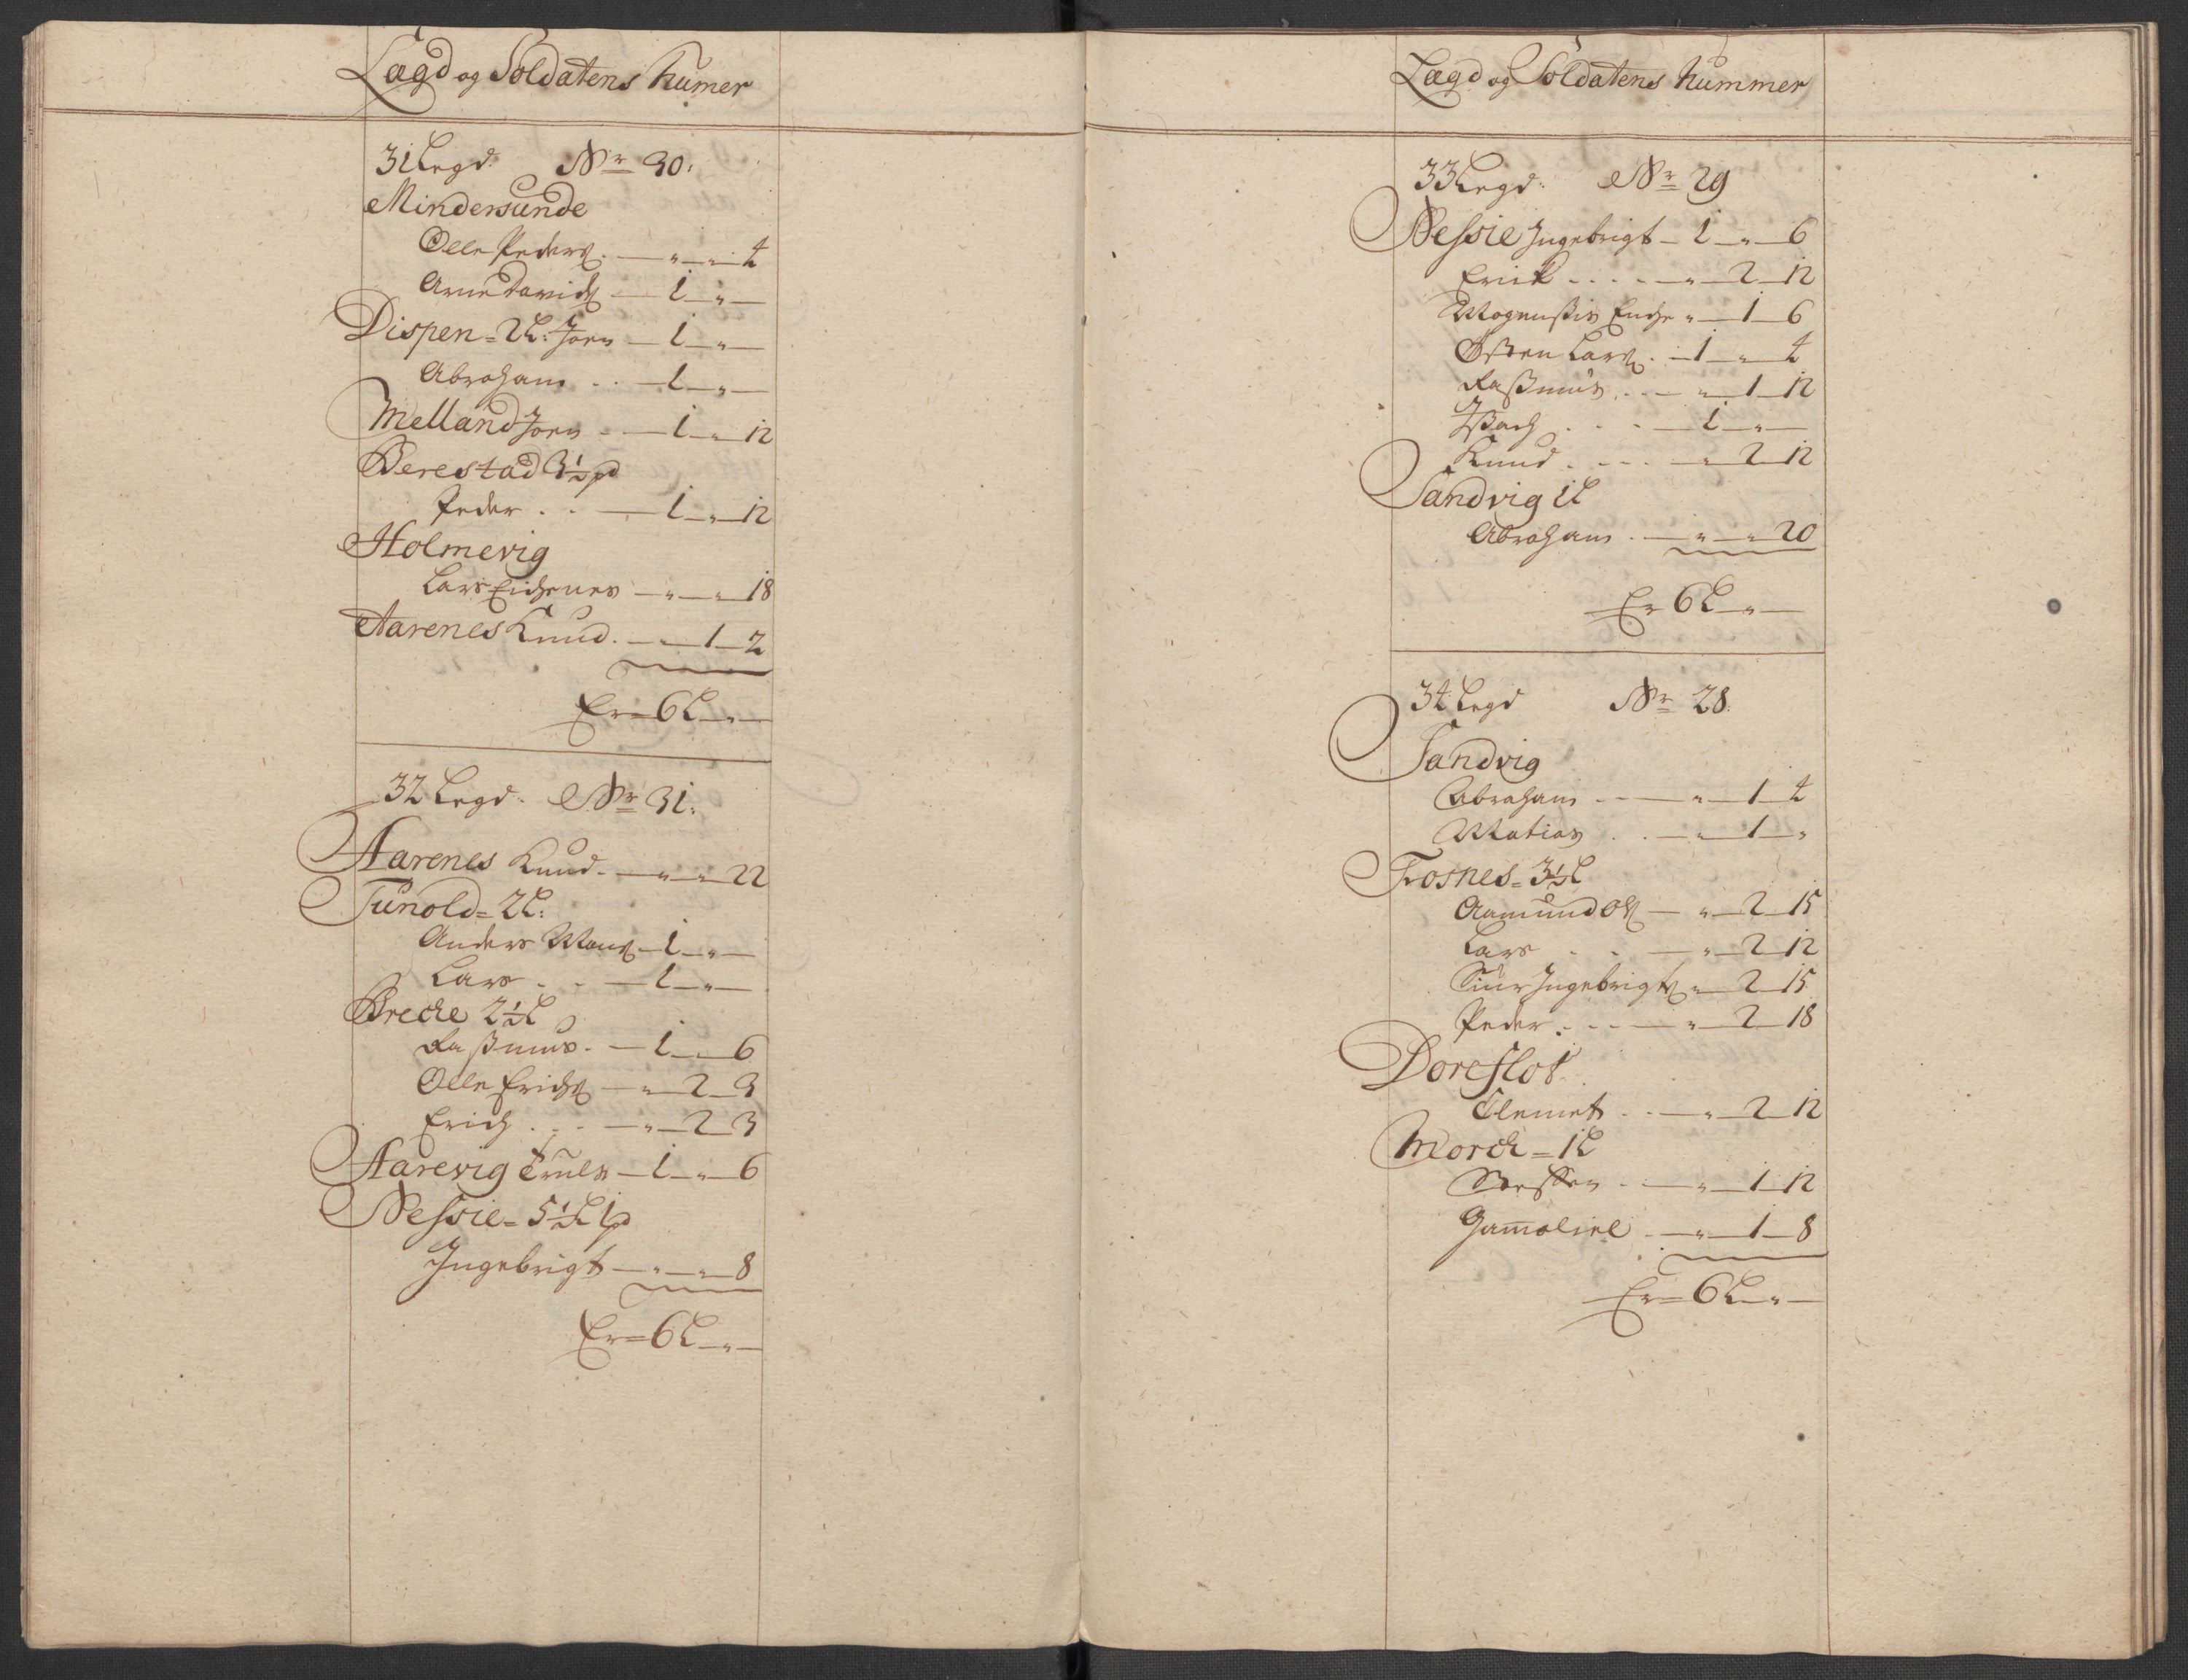 Lægd og Soldatens Numer
31 Legd. Nr 30:
Mindersunde
Olle Peders. — " — " — 4
Arne Davids — 1 — " —
Dispen = 2L: Joen — 1 — " —
Abraham . . — 1 — " —
Melland Joen — 1 — " — 12
Berestad 3½ pd
Peder . . — 1 — " — 12
Holmevig
Lars Eichenes — " — " — 18
Aarenes Knud. — " — 1 — 2
Er = 6L — " —
32 Legd. Nr 31:
Aarenes Knud. — " — " — 22
Tunold = 2L:
Anders Mons — 1 — " —
Lars . . — 1 — " —
Breche 2½L
Rassmus. — 1 — " — 6
Olle Erichs — " — 2 — 3
Erich . . . — " — 2 — 3
Aarevig Truls — 1 — " — 6
Nessie = 5½L 1 pd
Ingebrigt — " — " — 8
Er = 6L — " —
Lægd og Soldatens Nummer
33 Legd: Nr 29
Nessie Ingebrigt — 1 — " — 6
Erick . . . . — " — 2 — 12
Enche " — 1 — 6
Østen Lars . — 1 — " — 4
Rassmus . . . — " — 1 — 12
Isach . . . — 1 — " —
Knud . . . . — " — 2 — 12
Sandvig 1L
Abraham . — " — " — 20
Er 6L — " —
34 Legd Nr 28.
Sandvig
Abraham . . — " — 1 — 4
Matias . . — " — 1 — "
Frosnes = 3½L
Aamund Ols — " — 2 — 15
Lars . . — " — 2 — 12
Siur Ingebrigts " — 2 — 15
Peder . . . . — " — 2 — 18
Doreflot
Clemet . . — " — 2 — 12
Morch = 1L
— " — 1 — 12
Gamaliel . — " — 1 — 8
Er = 6L — " —